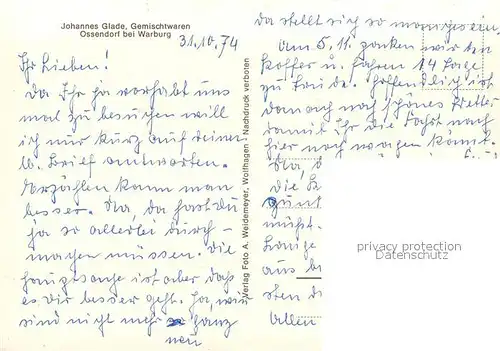 Johannes Glade, Gemischtwaren
Ossendorf bei Warburg
31.10.74
Ihr Lieben!
Da Ihr ja vorhabt uns
mal zu besuchen will
ich nur kurz auf deinen
lb. Brief antworten.
Erzählen kann man
besser. Na, da hast du
ja so allerlei durch-
machen müssen. Die
Hauptsache ist aber daß
es Dir besser geht. Ja, wir
sind nicht mehr ganz
neu
Verlag Foto A. Weidemeyer, Wolfhagen · Nachdruck verboten
da stellt sich so manches ein.
Am 5.11. packen wir den
Koffer u. fahren 14 Tage
zu Hoffentlich ist
danach noch schönes Wetter
damit Ihr die Fahrt nach
hier noch wagen könnt.
Na,
die
müßt.
aus
sten
allen
privacy protection
Datenschutz